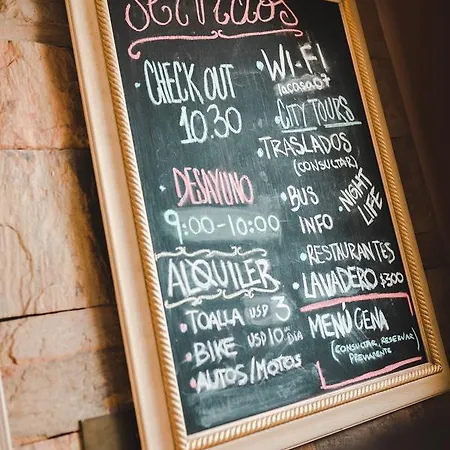 Servicios
· CHECK OUT
10.30
DESAYUNO
9:00-10:00
ALQUILER
· TOALLA USD 3
· BIKE USD 10 DIA
· AUTOS/MOTOS
· WI-FI
lacasa07
· CITY TOURS
· TRASLADOS
(CONSULTAR)
· BUS
INFO
· NIGHT
LIFE
· RESTAURANTES
· LAVADERO $300
MENÚ CENA
(CONSULTAR, RESERVAR
PREVIAMENTE)